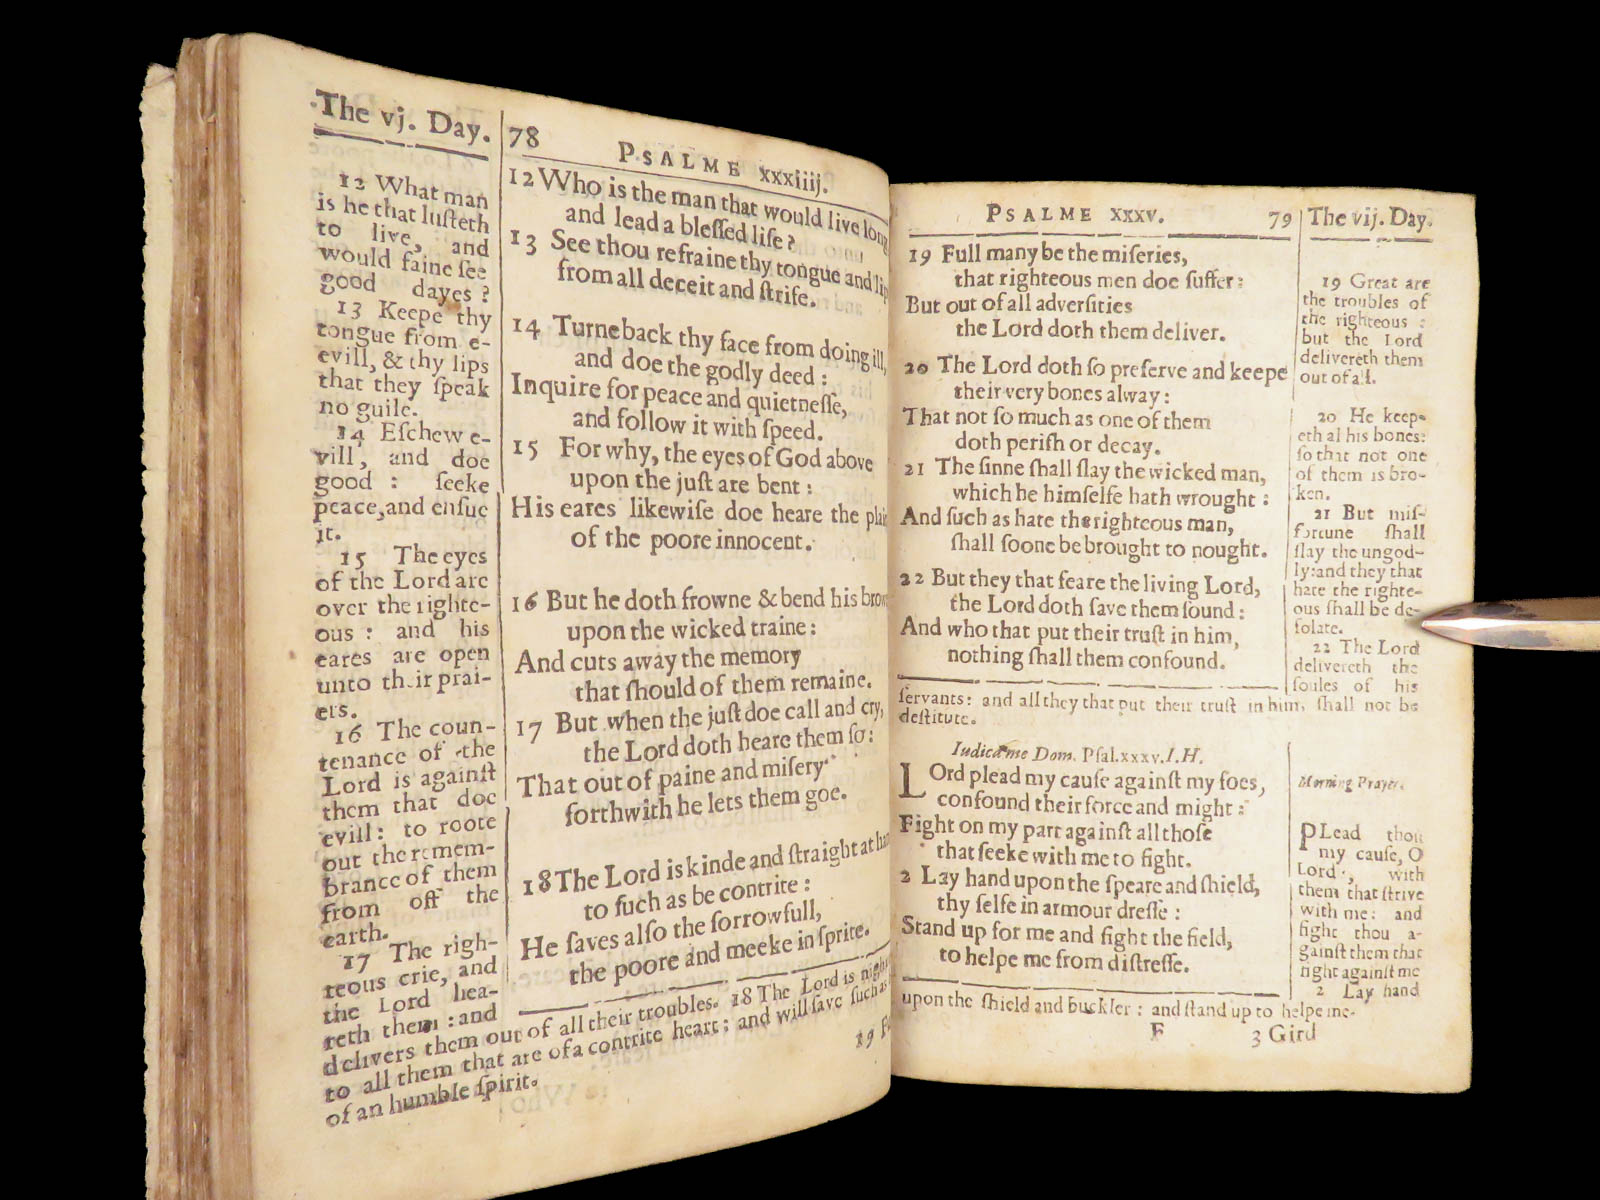 The vj. Day.
12 What man
is he that luſteth
to live, and
would faine ſee
good dayes?
13 Keepe thy
tongue from e-
evill, & thy lips
that they ſpeak
no guile.
14 Eſchew e-
vill, and doe
good : ſeeke
peace, and enſue
it.
15 The eyes
of the Lord are
over the righte-
ous : and his
eares are open
unto their prai-
ers.
16 The coun-
tenance of the
Lord is againſt
them that doe
evill : to roote
out the remem-
brance of them
from off the
earth.
17 The righ-
teous crie, and
the Lord hea-
reth them : and
delivers them out of all their troubles. 18 The Lord is nigh
to all them that are of a contrite heart ; and will ſave ſuch as
of an humble ſpirit.
78
PSALME xxxiiij.
12 Who is the man that would live long
and lead a bleſſed life ?
13 See thou refraine thy tongue and lip
from all deceit and ſtrife.
14 Turne back thy face from doing ill,
and doe the godly deed :
Inquire for peace and quietneſſe,
and follow it with ſpeed.
15 For why, the eyes of God above
upon the juſt are bent :
His eares likewiſe doe heare the
of the poore innocent.
16 But he doth frowne & bend his
upon the wicked traine :
And cuts away the memory
that ſhould of them remaine.
17 But when the juſt doe call and cry,
the Lord doth heare them ſo :
That out of paine and miſery
forthwith he lets them goe.
18 The Lord is kinde and ſtraight at
to ſuch as be contrite :
He ſaves alſo the ſorrowfull,
the poore and meeke in ſprite.
19
PSALME xxxv.
79
The vij. Day.
19 Full many be the miſeries,
that righteous men doe ſuffer :
But out of all adverſities
the Lord doth them deliver.
20 The Lord doth ſo preſerve and keepe
their very bones alway :
That not ſo much as one of them
doth periſh or decay.
21 The ſinne ſhall ſlay the wicked man,
which he himſelfe hath wrought :
And ſuch as hate the righteous man,
ſhall ſoone be brought to nought.
22 But they that feare the living Lord,
the Lord doth ſave them ſound :
And who that put their truſt in him,
nothing ſhall them confound.
19 Great are
the troubles of
the righteous :
but the Lord
delivereth them
out of all.
20 He keep-
eth al his bones:
ſo that not one
of them is bro-
ken.
21 But miſ-
fortune ſhall
ſlay the ungod-
ly: and they that
hate the righte-
ous ſhall be de-
ſolate.
22 The Lord
delivereth the
ſoules of his
ſervants : and all they that put their truſt in him, ſhall not be
deſtitute.
Iudica me Dom. Pſal.xxxv. I.H.
LOrd plead my cauſe againſt my foes,
confound their force and might :
Fight on my part againſt all thoſe
that ſeeke with me to fight.
2 Lay hand upon the ſpeare and ſhield,
thy ſelfe in armour dreſſe :
Stand up for me and fight the field,
to helpe me from diſtreſſe.
Morning Prayer.
PLead thou
my cauſe, O
Lord, with
them that ſtrive
with me : and
fight thou a-
gainſt them that
fight againſt me
2 Lay hand
upon the ſhield and buckler : and ſtand up to helpe me.
F
3 Gird